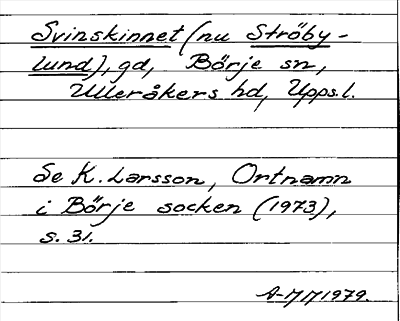 Svinskinnet (nu Ströby-
lund), gd, Börje sn,
Ulleråkers hd, Upps.l.
Se K. Larsson, Ortnamn
i Börje socken (1973),
s. 31.
1979.